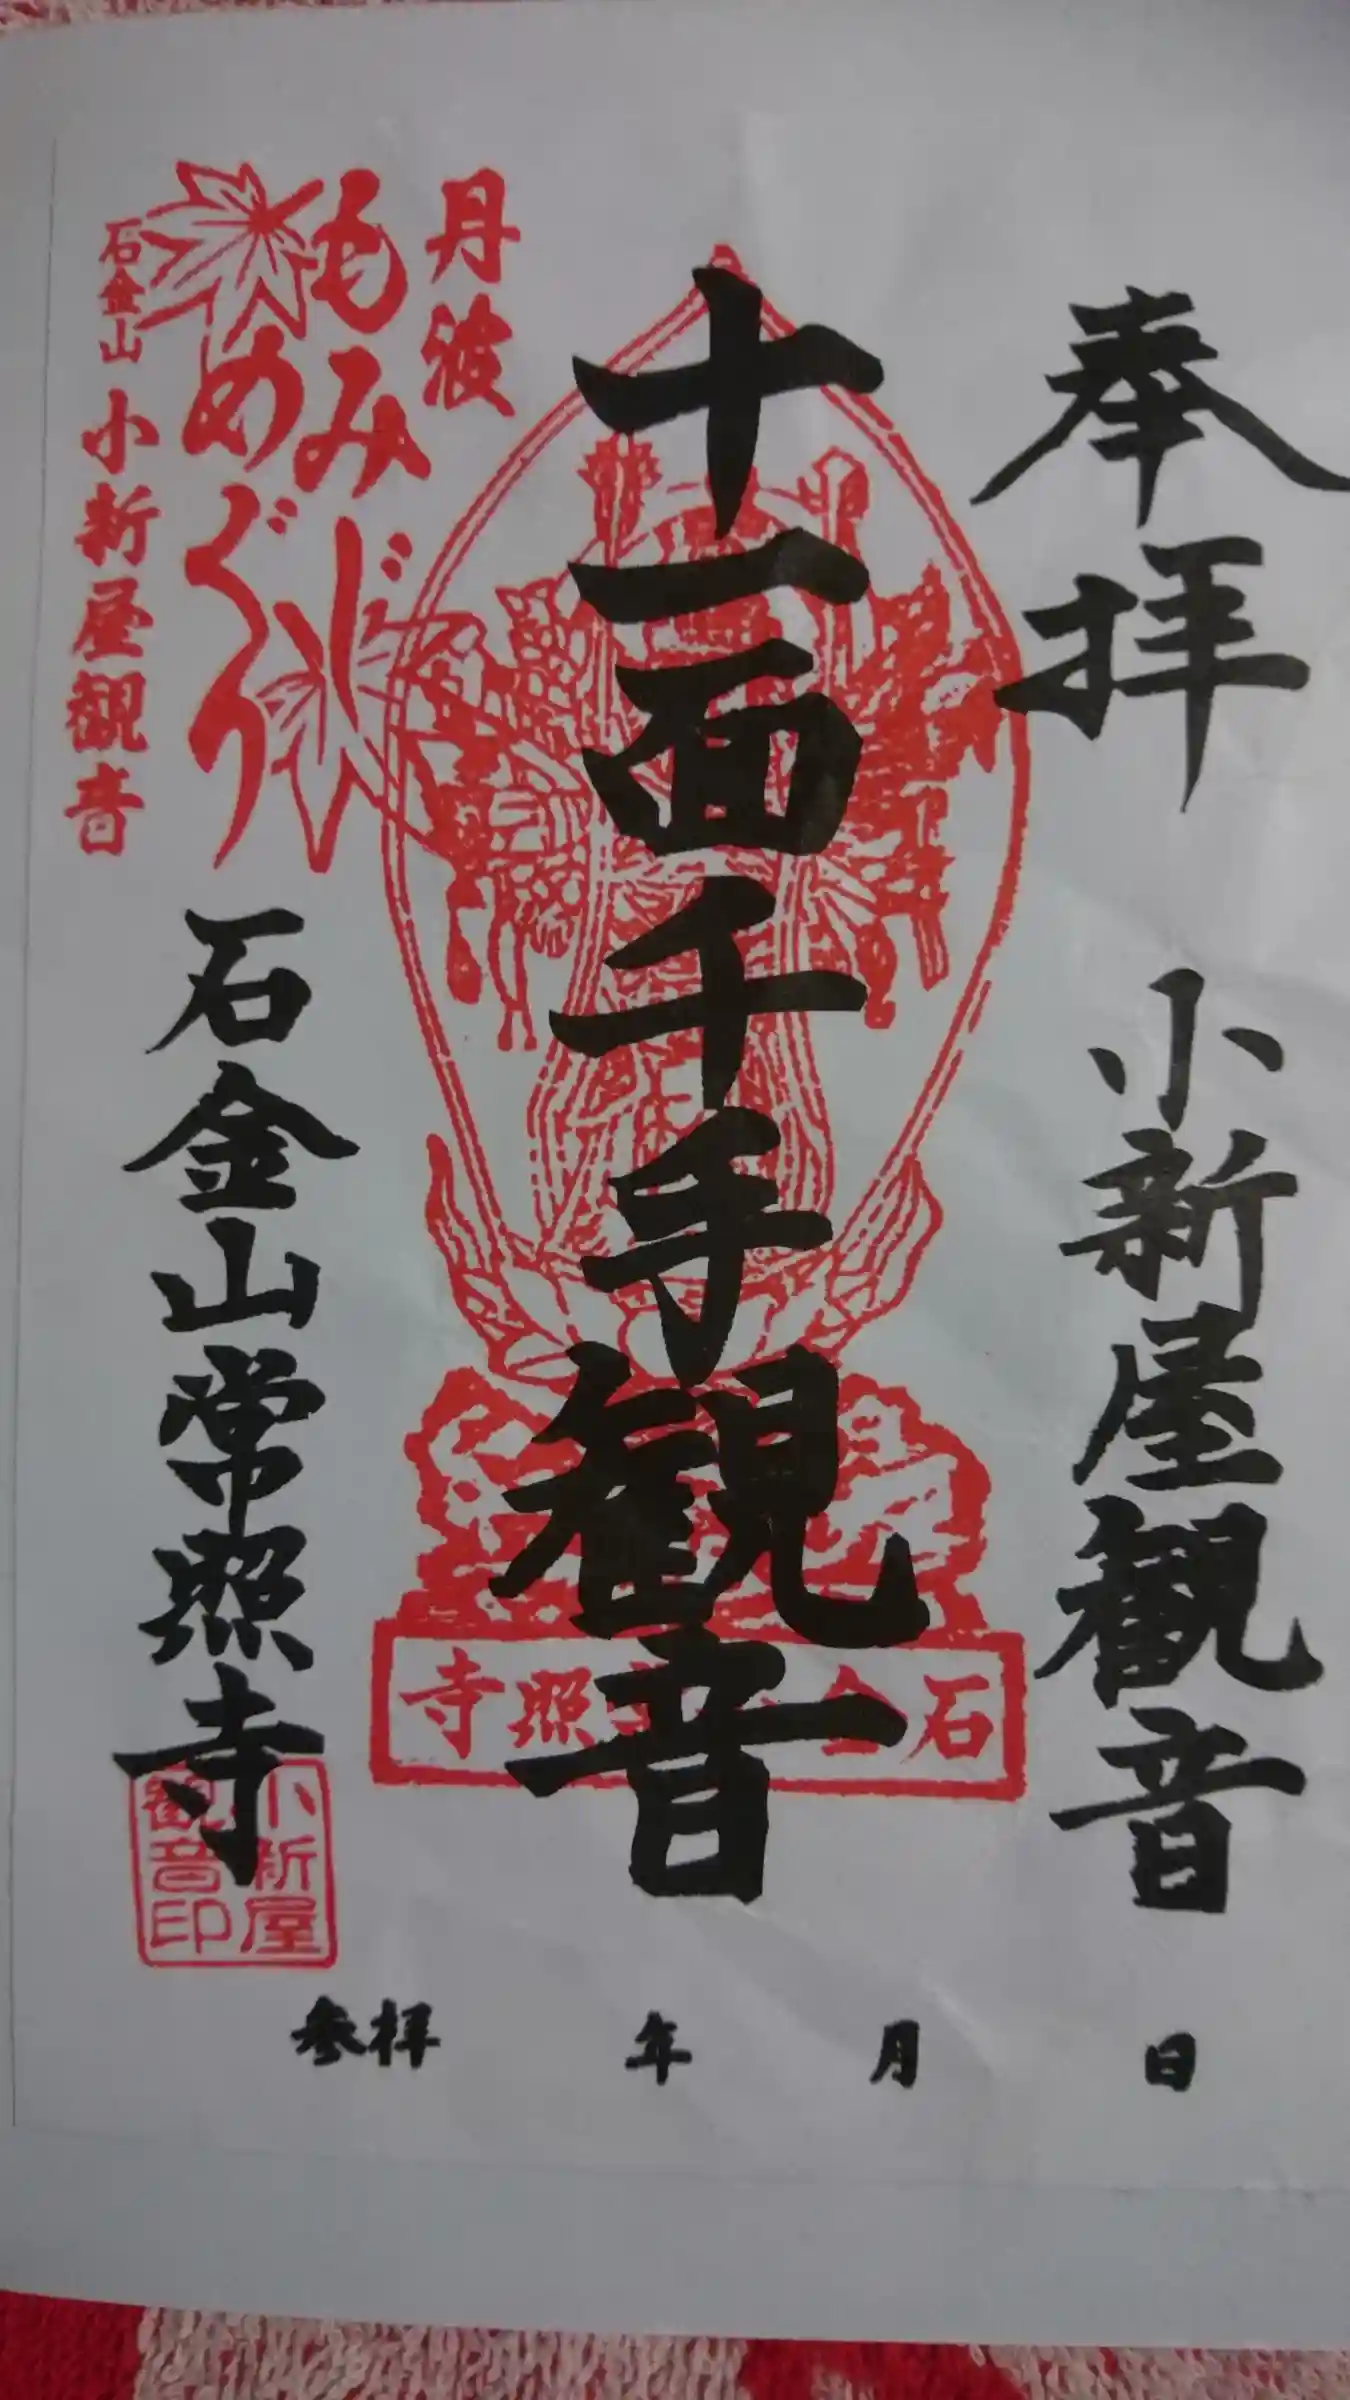 奉拝
小新屋観音
十一面千手観音
丹波
もみじ
めぐり
石金山 小新屋観音
石金山常照寺
石金山常照寺
小新屋
観音印
参拝 年 月 日